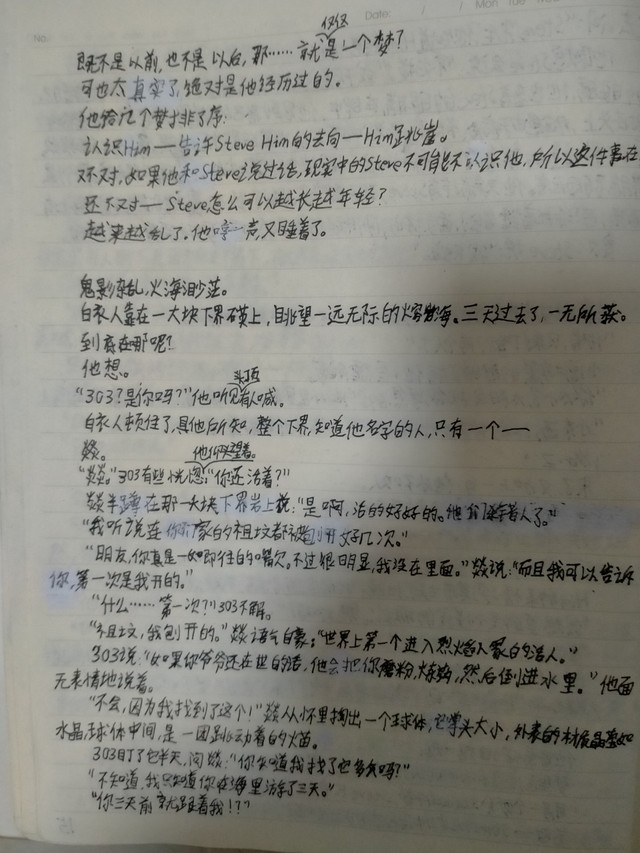 No. Date: / / Mon Tue
既不是以前,也不是以后,那……就仅仅是一个梦?
可也太真实了,绝对是他经历过的。
他给几个梦排了序:
认识Him—告诉Steve Him的去向—Him跳崖。
不对,如果他和Steve说过话,现实中的Steve不可能不认识他,所以这件事在
还不对—Steve怎么可以越长越年轻?
越来越乱了。他哼一声,又睡着了。
鬼影凌乱,火海渺茫。
白衣人靠在一大块下界石英上,眺望一远无际的火熔岩海。三天过去了,一无所获。
到底在哪呢?
他想。
"303?是你吗?"他听见头顶有人喊。
白衣人顿住了,具他所知,整个下界,知道他名字的人,只有一个—
燚。
"燚。"303有些恍惚,他仰望着。"你还活着?"
燚半蹲在那一大块下界岩上说:"是啊,活的好好的。他们
"我听说连你们家的祖坟都被刨开好几次。"
"朋友,你真是一如即往的嘴欠。不过很明显,我没在里面。"燚说:"而且我可以告诉
你,第一次是我开的。"
"什么……第一次?"303不解。
"祖坟,我刨开的。"燚语气自豪:"世界上第一个进入烈焰人冢的活人。"
303说:"如果你爷爷还在世的话,他会把你磨粉,炼药,然后倒进水里。"他面
无表情地说着。
"不会,因为我找到了这个!"燚从怀里掏出一个球体,它拳头大小,外表的材质晶莹如
水晶,球体中间,是一团跳动着的火苗。
303盯了它半天,问燚:"你知道我找了它多久吗?"
"不知道,我只知道你在海里游了三天。"
"你三天前就跟着我!?"